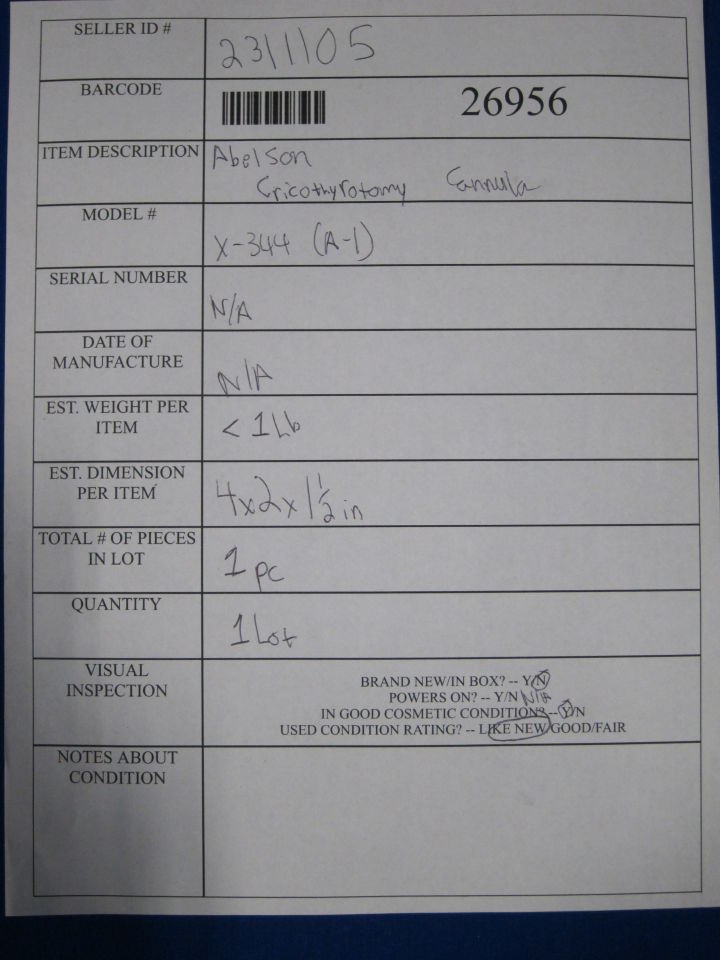 SELLER ID #
2311105
BARCODE
26956
ITEM DESCRIPTION
Abelson
Cricothyrotomy Cannula
MODEL #
X-344 (A-1)
SERIAL NUMBER
N/A
DATE OF
MANUFACTURE
N/A
EST. WEIGHT PER
ITEM
< 1 Lb
EST. DIMENSION
PER ITEM
4x2x1 1/2 in
TOTAL # OF PIECES
IN LOT
1 pc
QUANTITY
1 Lot
VISUAL
INSPECTION
BRAND NEW/IN BOX? -- Y/N
POWERS ON? -- Y/N N/A
IN GOOD COSMETIC CONDITION? -- Y/N
USED CONDITION RATING? -- LIKE NEW/GOOD/FAIR
NOTES ABOUT
CONDITION